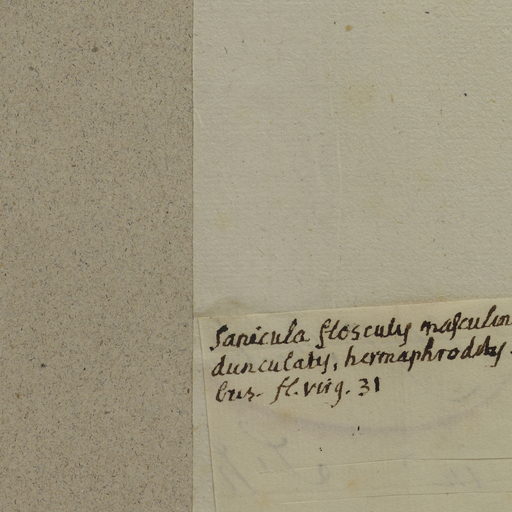 Sanicula flosculis masculin
dunculatis, hermaphroditis
bus. fl. virg. 31